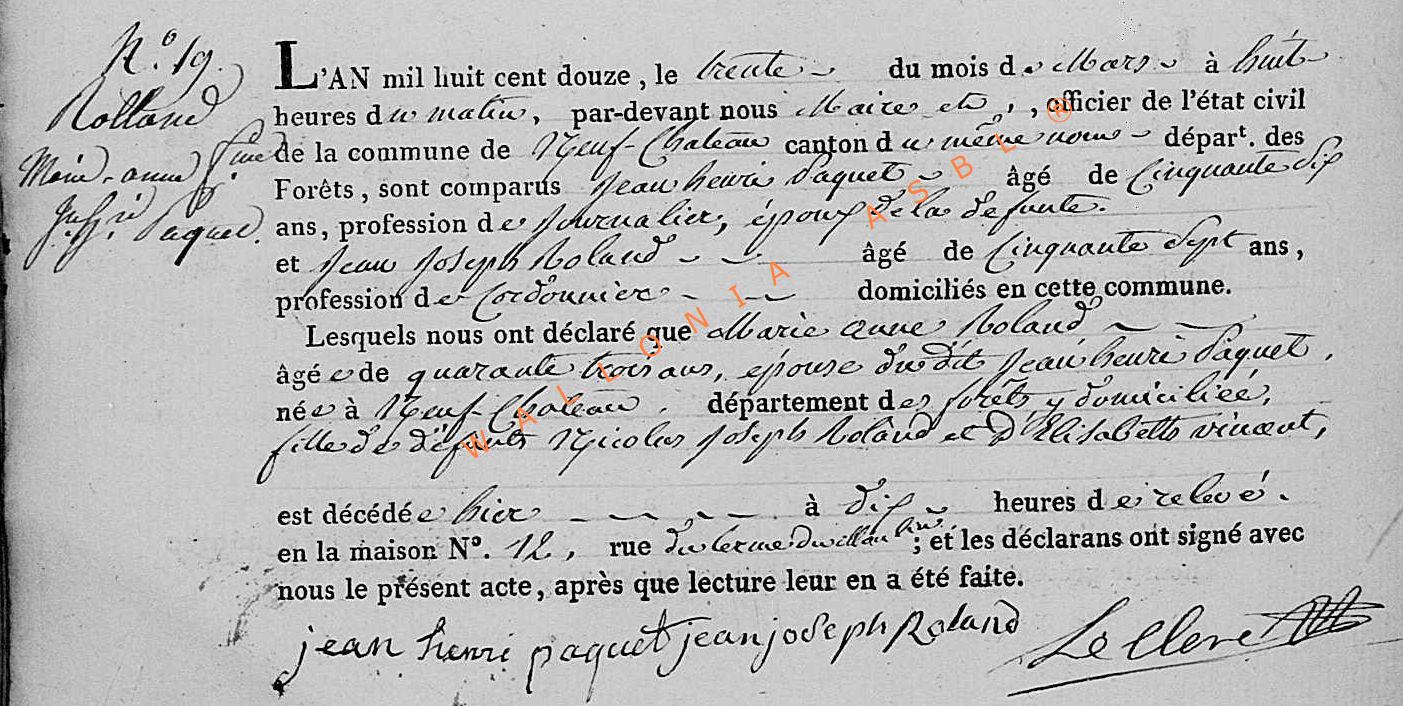 N.º 19.
Rolland
Marie-anne f.me
J. h.ri Paquet.
L'AN mil huit cent douze, le trente du mois de Mars à huit
heures du matin, par-devant nous Maire etc, officier de l'état civil
de la commune de Neuf-Chateau canton du même nom dépar.t des
Forêts, sont comparus Jean henri Paquet âgé de Cinquante dix
ans, profession de Journalier, époux de la defunte.
et Jean Joseph Roland âgé de Cinquante Sept ans,
profession de Cordonnier domiciliés en cette commune.
Lesquels nous ont déclaré que Marie anne Roland
âgée de quarante trois ans, épouse du dit Jean henri Paquet,
née à Neuf-Chateau, département des forêts y domiciliée,
fille de défunts Nicolas Joseph Roland et d'Elisabette vincent,
est décédée hier à dix heures de relevé.
en la maison Nº. 12, rue du ; et les déclarans ont signé avec
nous le présent acte, après que lecture leur en a été faite.
jean henri paquet jean joseph Roland Le Clerc
WALLONIA ASBL ®